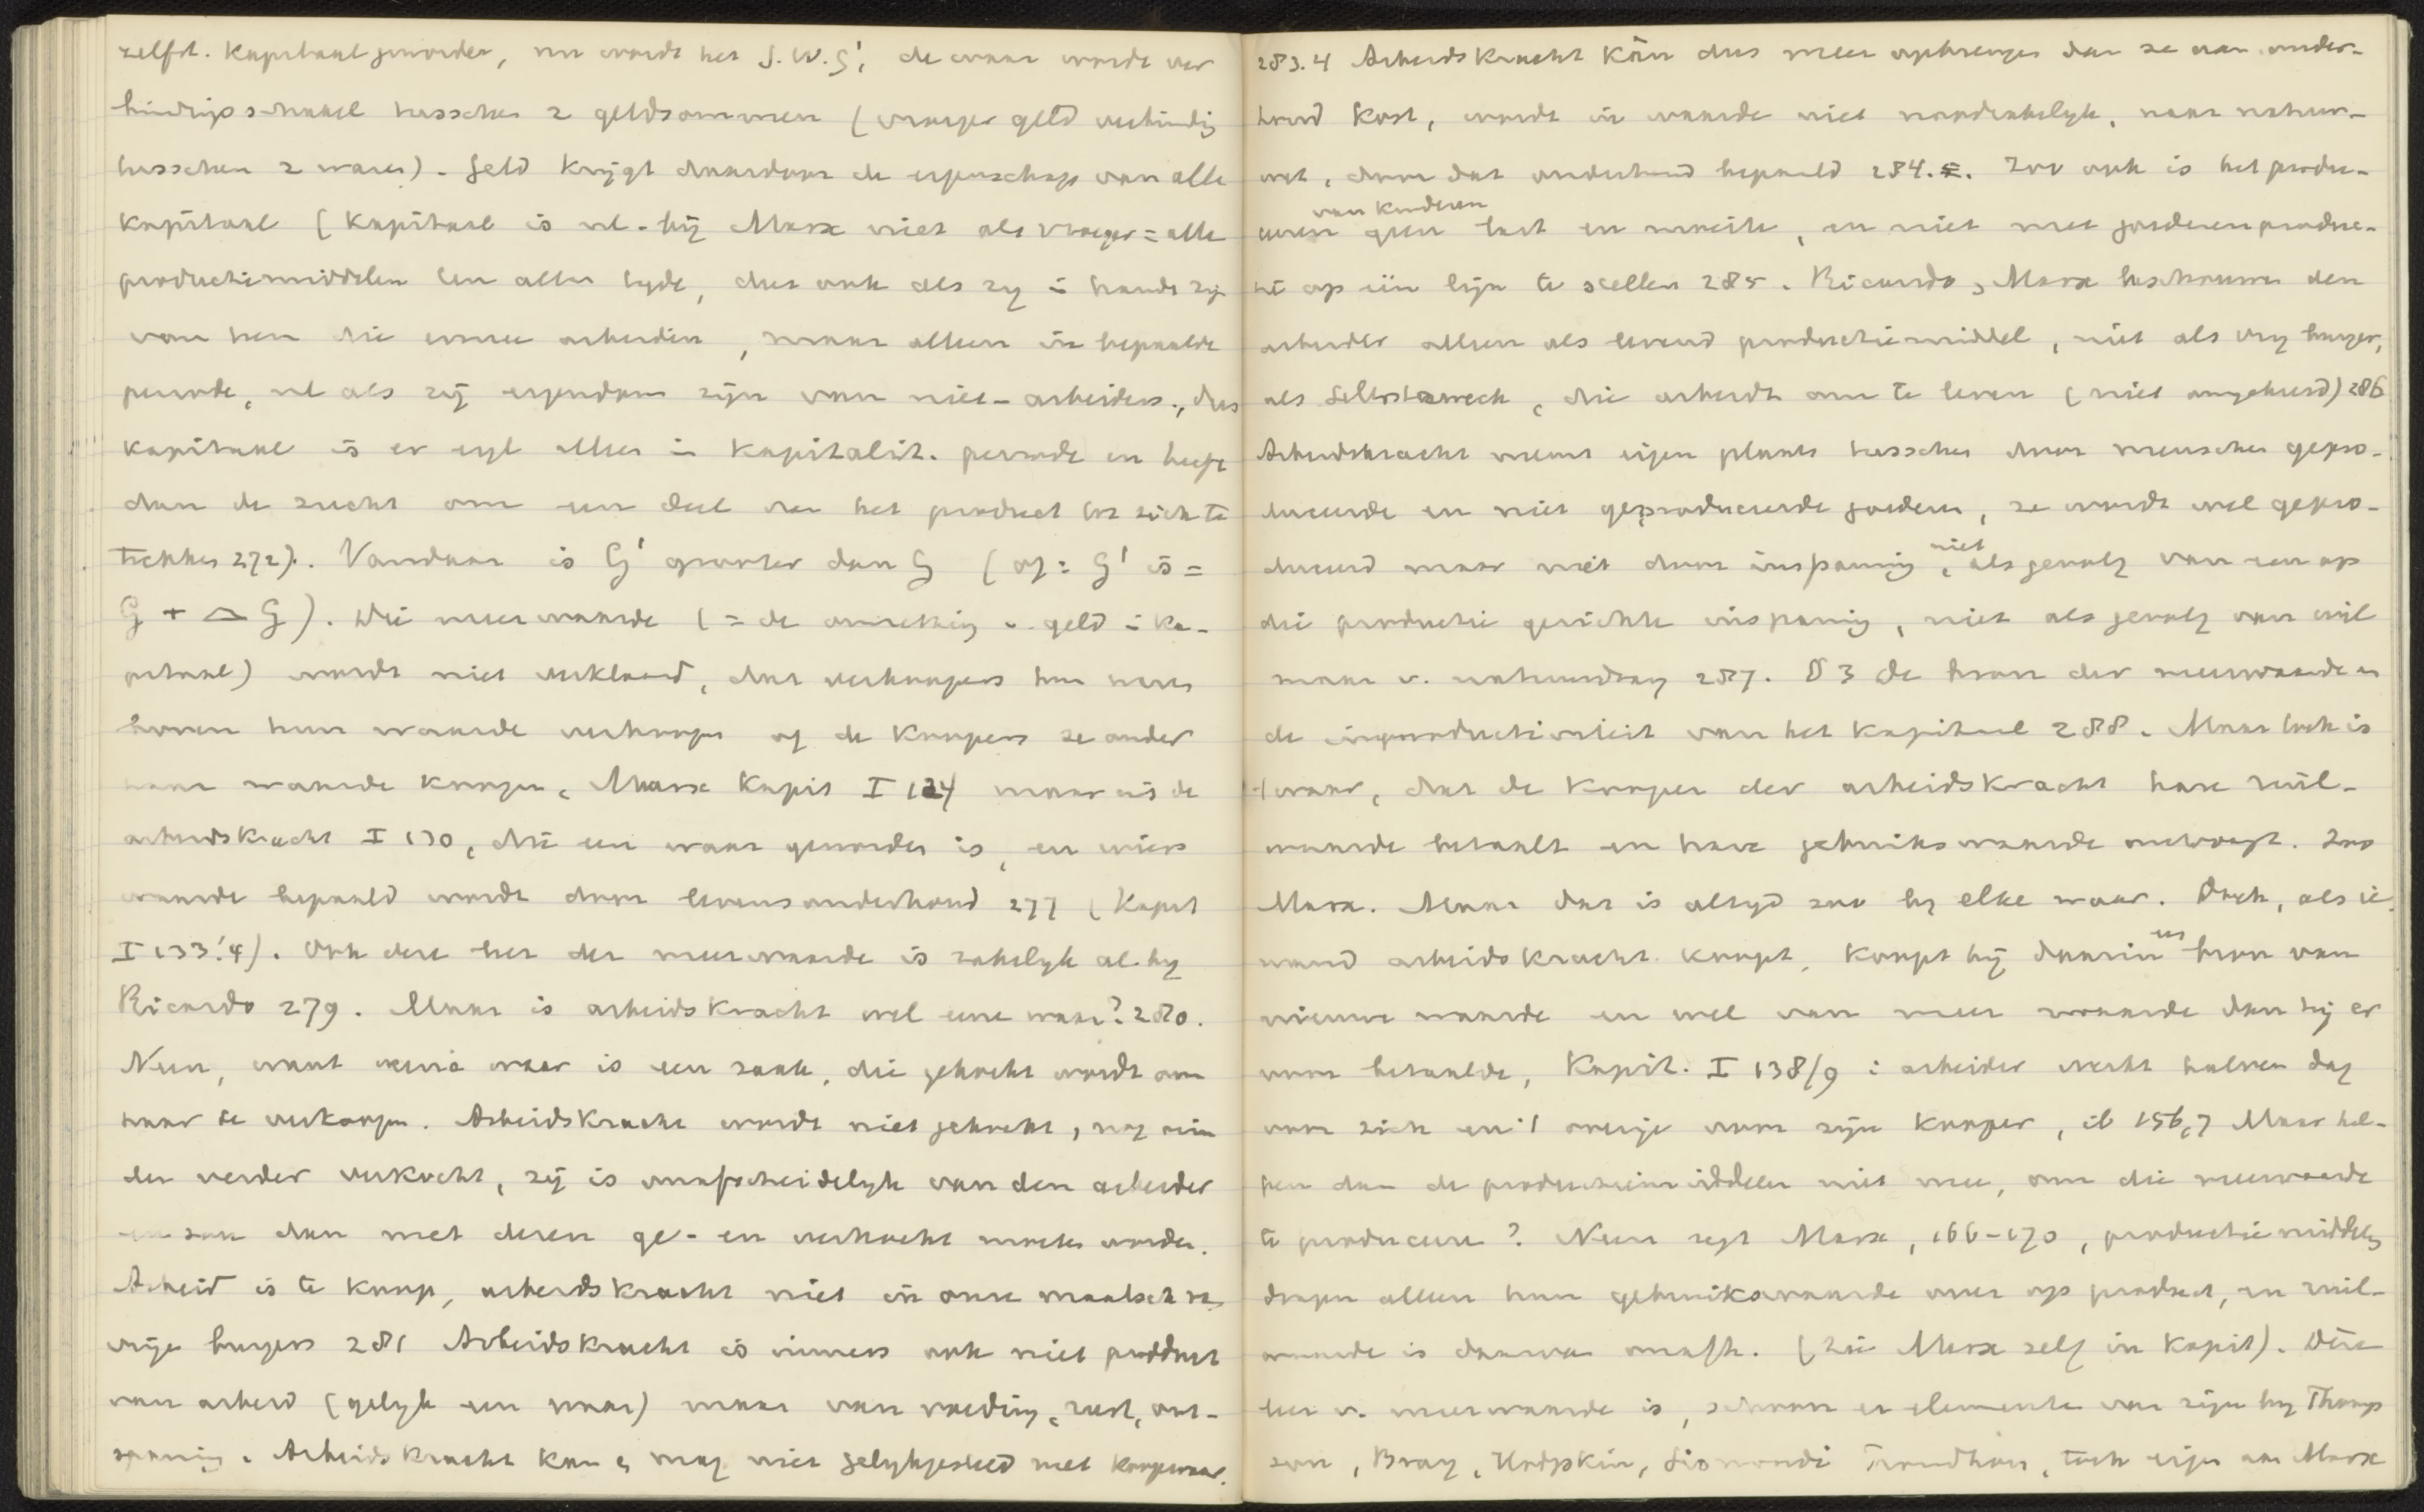 zelfst. Kapitaal geworden, nu wordt het G.W.G', de waar wordt ver
bindingsschakel tusschen 2 geldsommen (vroeger geld verbinding
tusschen 2 waren). Geld krijgt daardoor de eigenschap van alle
kapitaal (kapitaal is nl. bij Marx niet als vroeger = alle
productiemiddelen ten allen tyde, dus ook als zy in hands zyn
van hen die ermee arbeiden, maar alleen in bepaalde
periode, nl als zij eigendom zijn van niet-arbeiders, dus
kapitaal is er eygl alleen in Kapitalist. periode en heeft
dan de zucht om een deel van het product tot zich te
trekken 272). Vandaar is G' grooter dan G (of: G' is =
G + △ G). Die meerwaarde (= de omzetting v. geld in ka-
pitaal) wordt niet verklaard, daar verkoopers hun waren
boven hun waarde verkoopen of de Koopers ze onder
haar waarde koopen, Marx Kapit I 124 maar uit de
arbeidskracht I 130, die een waar geworden is, en wier
waarde bepaald wordt door levensonderhoud 277 (Kapit
I 133.'4). Ook deze leer der meerwaarde is zakelyk al by
Ricardo 279. Maar is arbeidskracht wel eene waar? 280.
Neen, want eene waar is een zaak, die gekocht wordt om
haar te verkoopen. Arbeidskracht wordt niet gekocht, nog min
der verder verkocht, zij is onafscheidelyk van den arbeider
en zou dan met dezen ge- en verkocht moeten worden.
Arbeid is te koop, arbeidskracht niet in onze maatsch v.
vrije burgers 281 Arbeidskracht is immers ook niet product
van arbeid (gelyk een waar) maar van voeding, rust, ont-
spanning. Arbeidskracht kan en mag niet gelykgesteld met koopwaar.
283.4 Arbeidskracht kàn dus meer opbrengen dan ze aan onder-
houd kost, wordt in waarde niet noodzakelyk, naar natuur-
wet, door dat onderhoud bepaald 284.5. Zoo ook is het produ-
ceeren van kinderen geen last en moeite, en niet met goederenproduc-
tie op één lijn te stellen 285. Ricardo, Marx beschouwen den
arbeider alleen als levend productiemiddel, niet als vry burger,
als Selbstzweck, die arbeidt om te leven (niet omgekeerd) 286
Arbeidskracht neemt eigen plaats tusschen door menschen gepro-
duceerde en niet geproduceerde goederen, ze wordt wel gepro-
duceerd maar niet door inspanning, niet als gevolg van een op
die productie gerichte inspanning, niet als gevolg van wil
maar v. natuurdrang 287. § 3 De bron der meerwaarde en
de improductiviteit van het Kapitaal 288. Maar toch is
't waar, dat de Kooper der arbeidskracht hare ruil-
waarde betaalt en hare gebruikswaarde ontvangt. Zoo
Marx. Maar dat is altyd zoo by elke waar. Doch, als ie-
mand arbeidskracht koopt, koopt hij daarin een bron van
nieuwe waarde en wel van meer waarde dan hij er
voor betaalde, Kapit. I 138/9: arbeider werkt halven dag
voor zich en 't overige voor zijn Kooper, ib 156,7 Maar hel-
pen dan de productiemiddelen niet mee, om die meerwaarde
te produceeren? Neen zegt Marx, 166-170, productiemiddelen
dragen alleen hun gebruikswaarde over op product, en ruil-
waarde is daarvan onafh. (Zie Marx zelf in Kapit). Deze
leer v. meerwaarde is, schoon er elementen van zijn by Thomp
son, Bray, Hodgskin, Sismondi Proudhon, toch eigen aan Marx